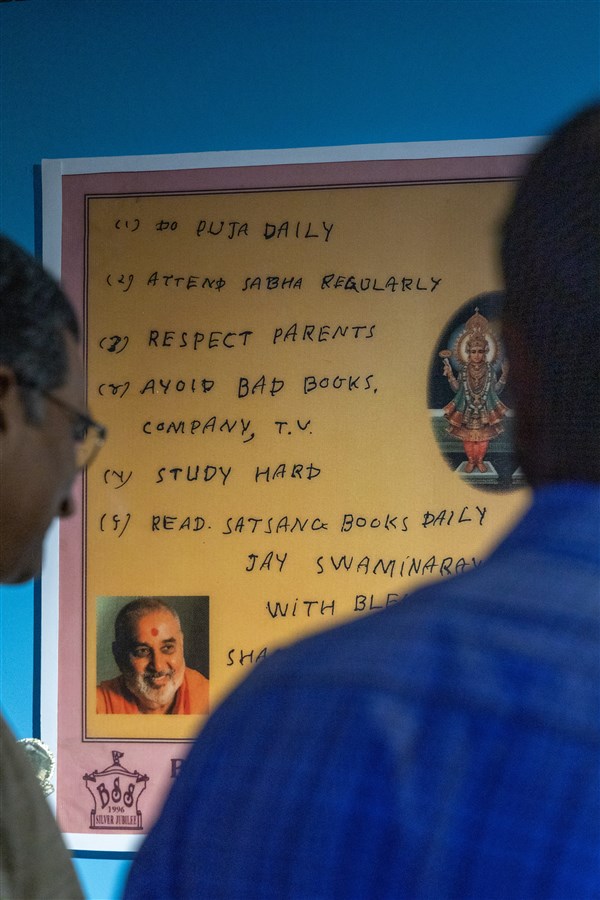 (૧) DO PUJA DAILY
(૨) ATTEND SABHA REGULARLY
(૩) RESPECT PARENTS
(૪) AVOID BAD BOOKS,
COMPANY, T.V.
(૫) STUDY HARD
(૬) READ. SATSANG BOOKS DAILY
JAY SWAMINARAY
WITH BLE
SHA
BSS
1996
SILVER JUBILEE